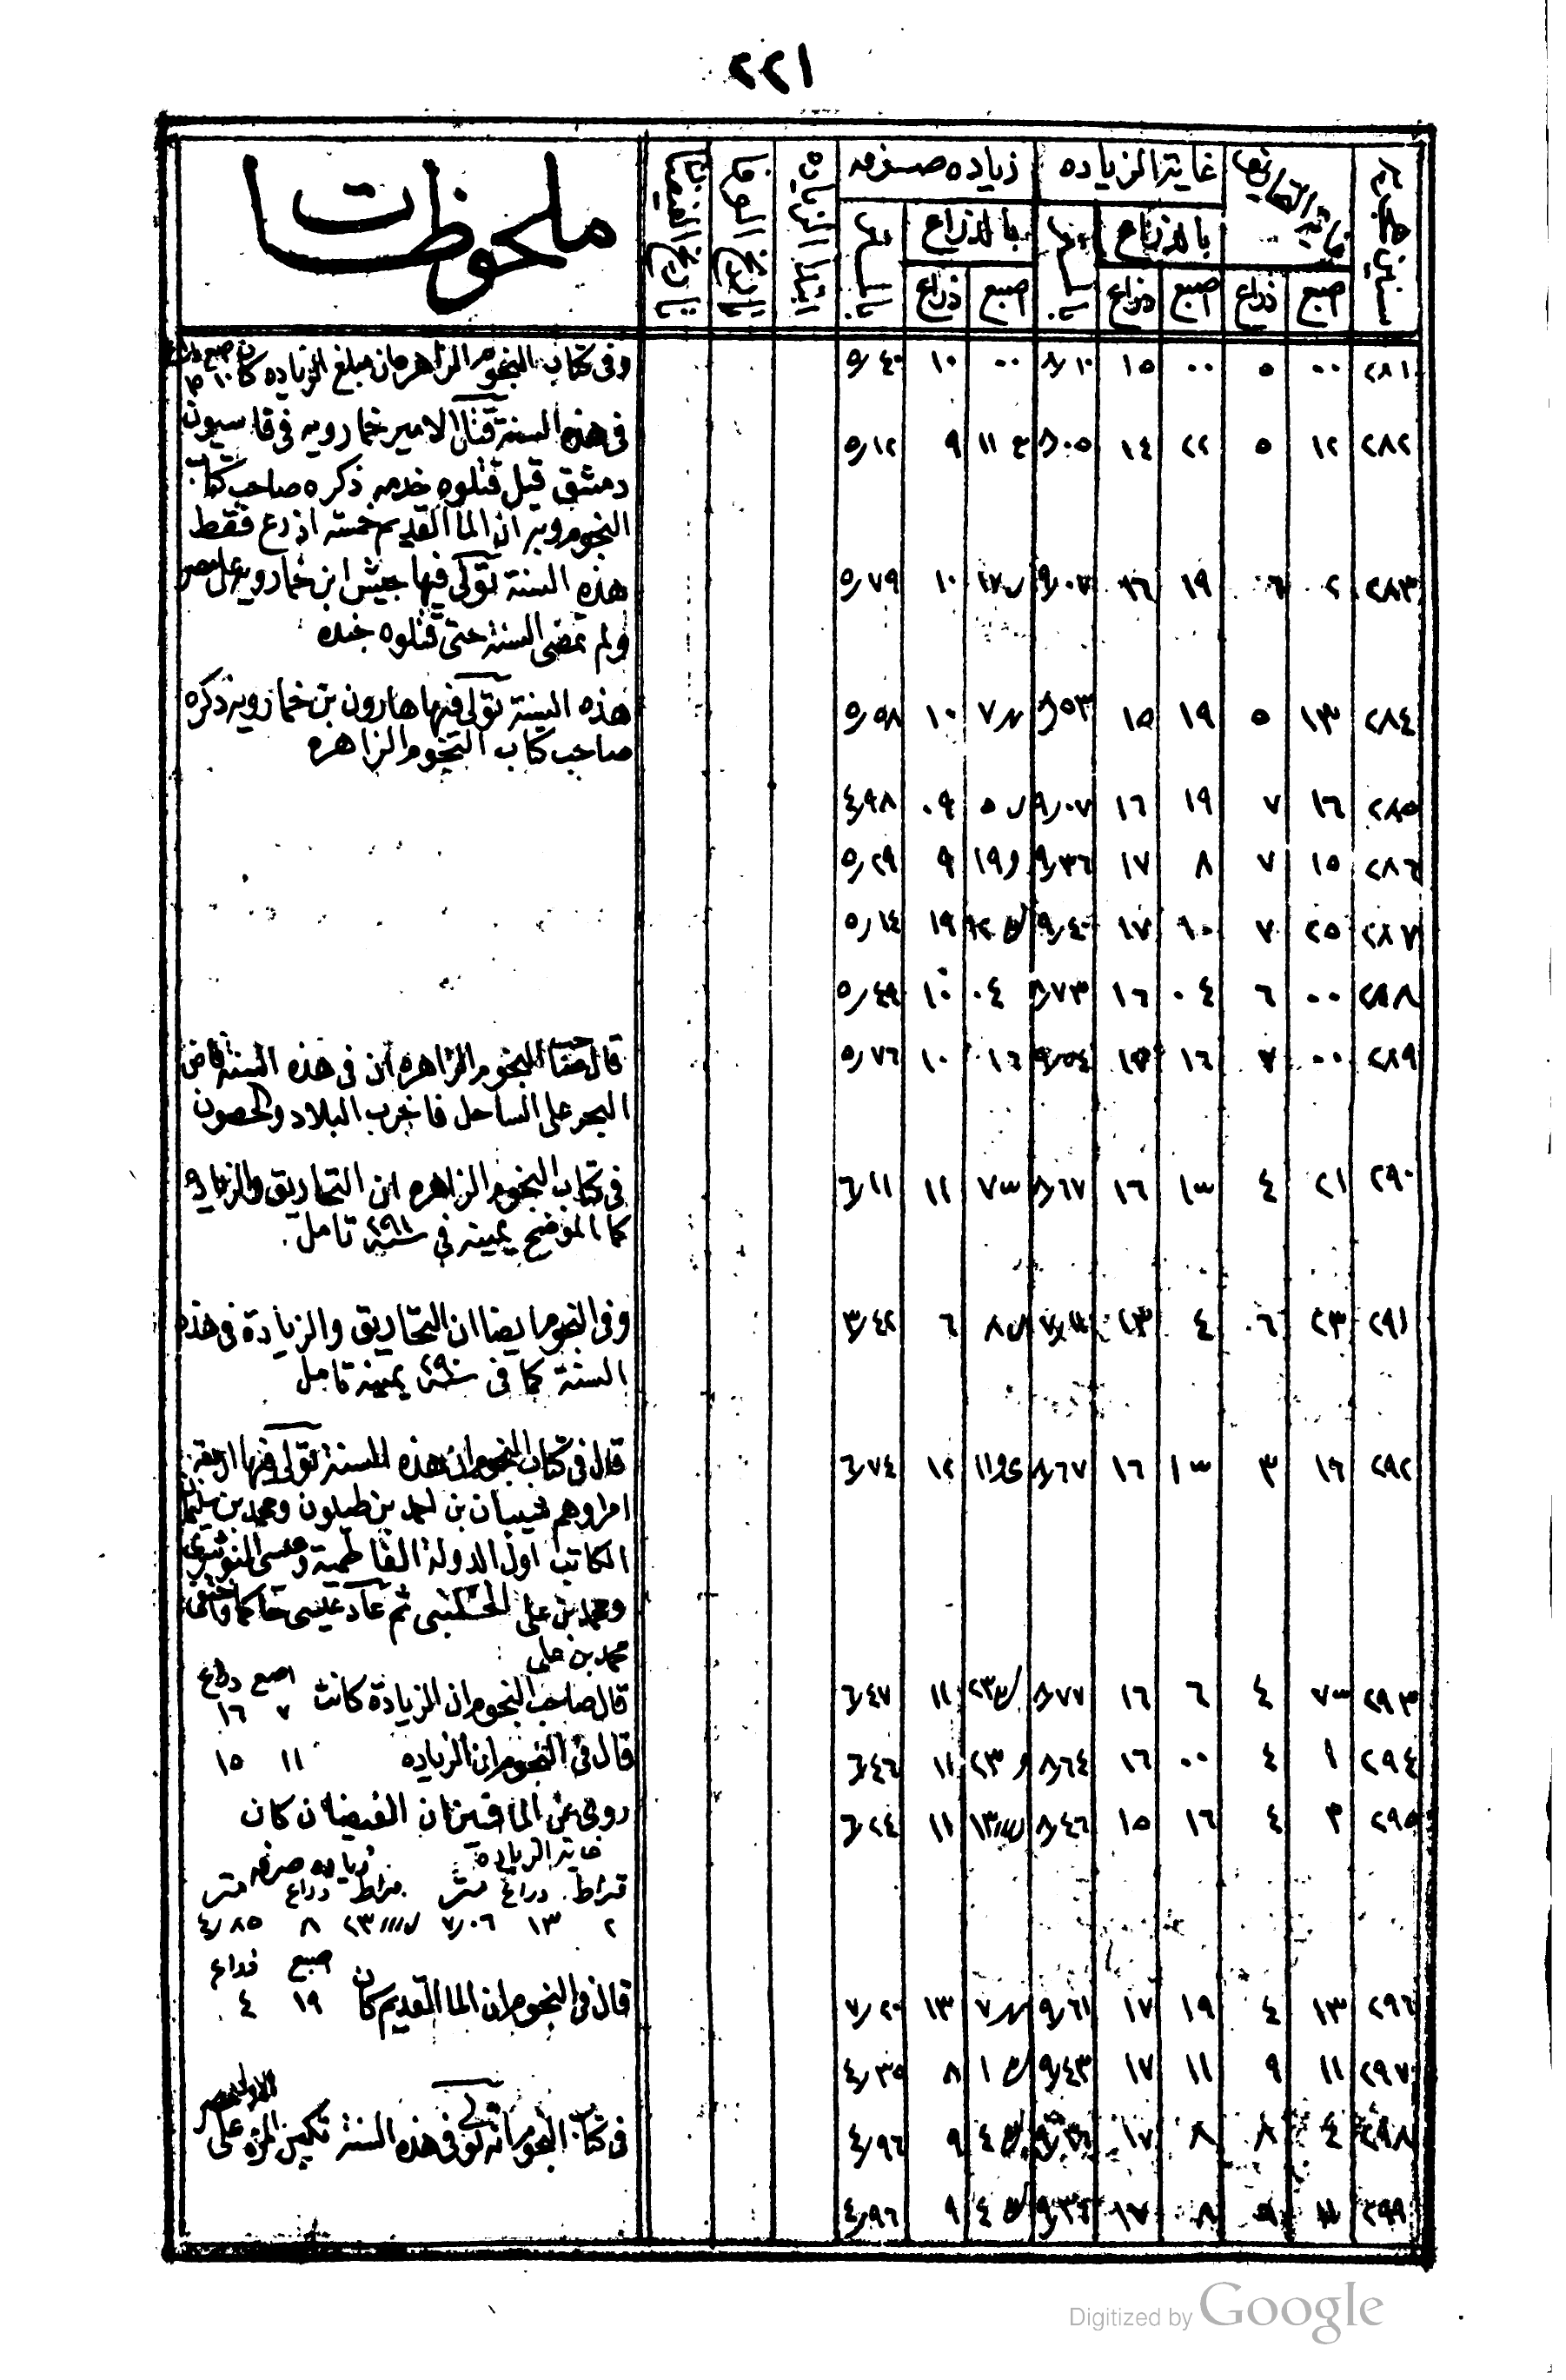 ٢٢١
سنين هجرية
غاية التحاريق
غاية الزياده
زياده صرفه
ابتدا الزيادة
تاريخ الوفا
تاريخ الفيضان
ملحوظات
بالذراع
بالذراع
اصبع ذراع اصبع ذراع اصبع ذراع
٢٨١ ٠٠ ٥ ٠٠ ١٥ ٨٫١٠ ٠٠ ١٠ ٥٫٤٠
وفى كتاب النجوم الزاهره ان مبلغ الزياده كان
٢٨٢ ١٢ ٥ ٢٢ ١٤ ٨٫٠٥ ١١ ٩ ٥٫١٢
فى هذه السنة قتل الامير خمارويه فى قاسيون
دمشق قيل قتلوه خدمه ذكره صاحب كتاب
النجوم وبه ان الما القديم خمسة اذرع فقط
٢٨٣ ٢ ٦ ١٩ ١٦ ٩٫٠٧ ١٧ ١٠ ٥٫٧٩
هذه السنة تولى فيها جيش ابن خمارويه على مصر
ولم تمضى السنة حتى قتلوه جنده
٢٨٤ ١٣ ٥ ١٩ ١٥ ٨٫٥٣ ٧ ١٠ ٥٫٥٨
هذه السنة تولى فيها هارون بن خمارويه ذكره
صاحب كتاب النجوم الزاهره
٢٨٥ ١٦ ٧ ١٩ ١٦ ٩٫٠٧ ٥ ٠٩ ٤٫٩٨
٢٨٦ ١٥ ٧ ٨ ١٧ ٩٫٣٦ ١٩ ٩ ٥٫٢٩
٢٨٧ ٢٥ ٧ ١٠ ١٧ ٩٫٤٠ ١٩ ٥٫١٤
٢٨٨ ٠٠ ٦ ٠٤ ١٦ ٨٫٧٣ ٠٤ ١٠ ٥٫٤٩
٢٨٩ ٠٠ ٧ ١٦ ١٧ ١٦ ١٠ ٥٫٧٦
قال صاحب النجوم الزاهره ان فى هذه السنة فاض
البحر على الساحل فاخرب البلاد والحصون
٢٩٠ ٢١ ٤ ١٣ ١٦ ٨٫٦٧ ٧ ١١ ٦٫١١
فى كتاب النجوم الزاهره ان التحاريق والزياده
كما الموضح يمينه في سنة ٢٩١ تامل.
٢٩١ ٢٣ ٦ ٤ ١٣ ٨ ٦ ٣٫٤٢
وفى النجوم ايضا ان التحاريق والزيادة فى هذه
السنة كما فى سنة ٢٩٠ يمينه تامل
٢٩٢ ١٦ ٣ ١٣ ١٦ ٨٫٦٧ ١١ ١٢ ٦٫٧٤
قال فى كتاب النجوم ان هذه السنة تولى فيها اربعة
امرا وهم شيبان بن احمد بن طيلون ومحمد بن سليمان
الكاتب اول الدولة الفاطمية وعيسى النوشرى
ومحمد بن على ثم عاد عيسى حاكما
محمد بن على
٢٩٣ ٤ ٦ ١٦ ٨٫٧٧ ٢٣ ١١ ٦٫٤٧
قال صاحب النجوم ان الزيادة كانت اصبع ٧ ذراع ١٦
٢٩٤ ١ ٤ ٠٠ ١٦ ٨٫٦٤ ٢٣ ١١ ٦٫٤٦
قال فى النجوم ان الزياده ١١ ١٥
٢٩٥ ٣ ٤ ١٦ ١٥ ٨٫٤٦ ١٣ ١١ ٦٫٢٤
روى عن الما قيزان الفيضان كان
غاية الزيادة زياده صرفه
قيراط ذراع متر قيراط ذراع متر
٢ ١٣ ٧٫٠٦ ٢٣ ٨ ٤٫٨٥
اصبع ذراع
٢٩٦ ١٣ ٤ ١٩ ١٧ ٩٫٦١ ٧ ١٣ ٧٫٢٠
قال فى النجوم ان الما القديم كان ١٩ ٤
٢٩٧ ١١ ٩ ١١ ١٧ ٩٫٤٣ ١ ٨ ٤٫٣٥
٢٩٨ ٤ ٨ ٨ ١٧ ٩٫٣٦ ٤ ٩ ٤٫٩٦
فى كتاب النجوم انه تولى فى هذه السنة تكين على مصر
٢٩٩ ٨ ١٧ ٩٫٣٦ ٤ ٩ ٤٫٩٦
Digitized by Google